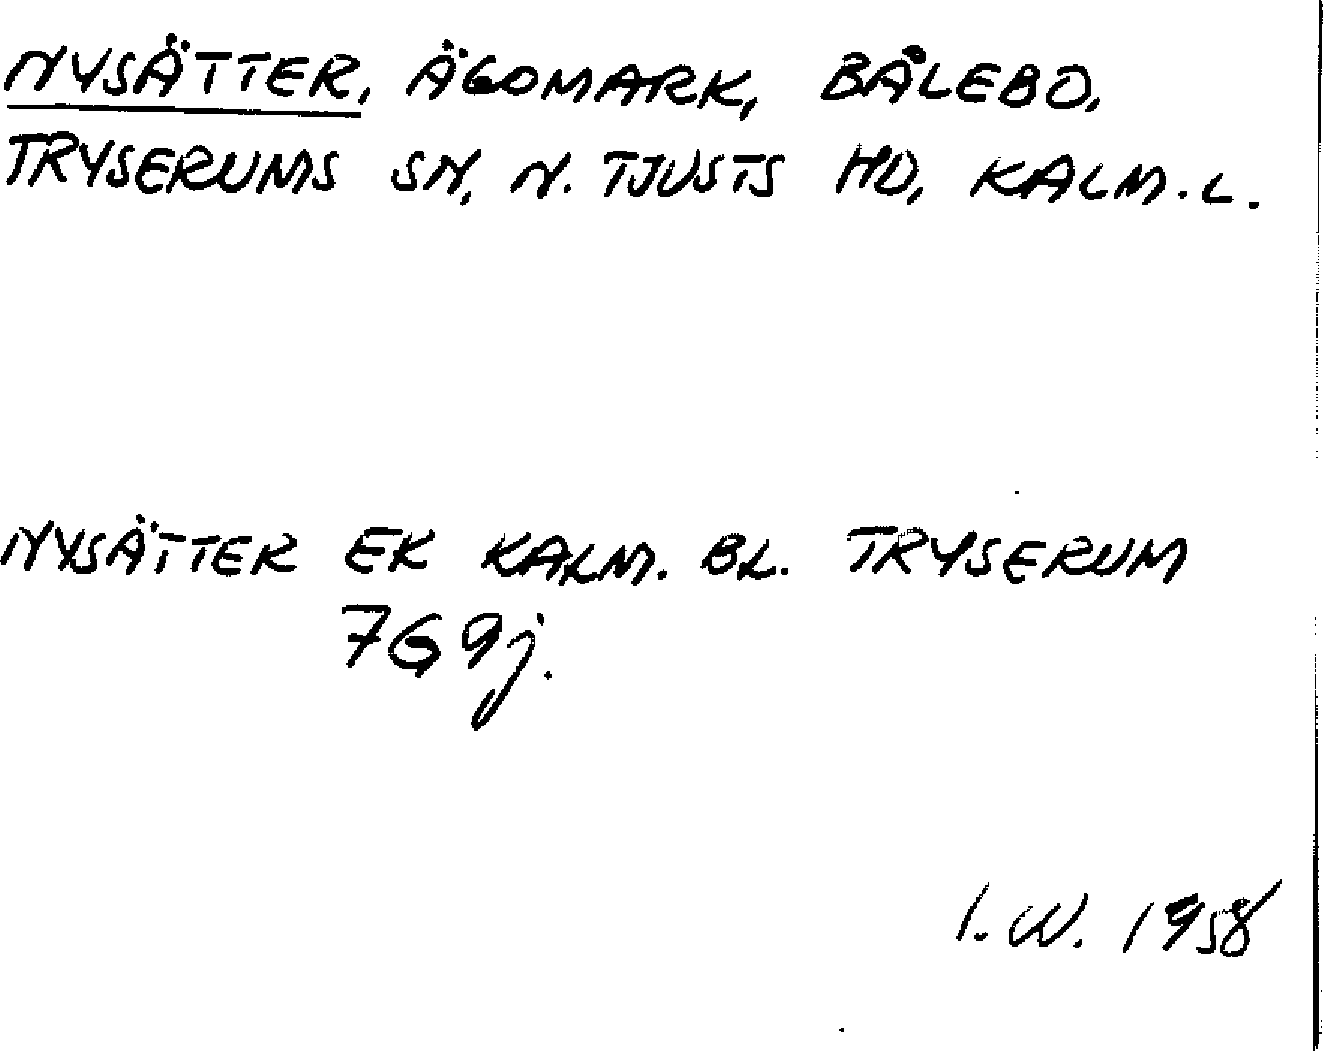 NYSÄTTER, ÄGOMARK, BÅLEBO,
TRYSERUMS SN, N. TJUSTS HD, KALM. L.
NYSÄTTER EK KALM. BL. TRYSERUM
7G 9j.
I. W. 1958